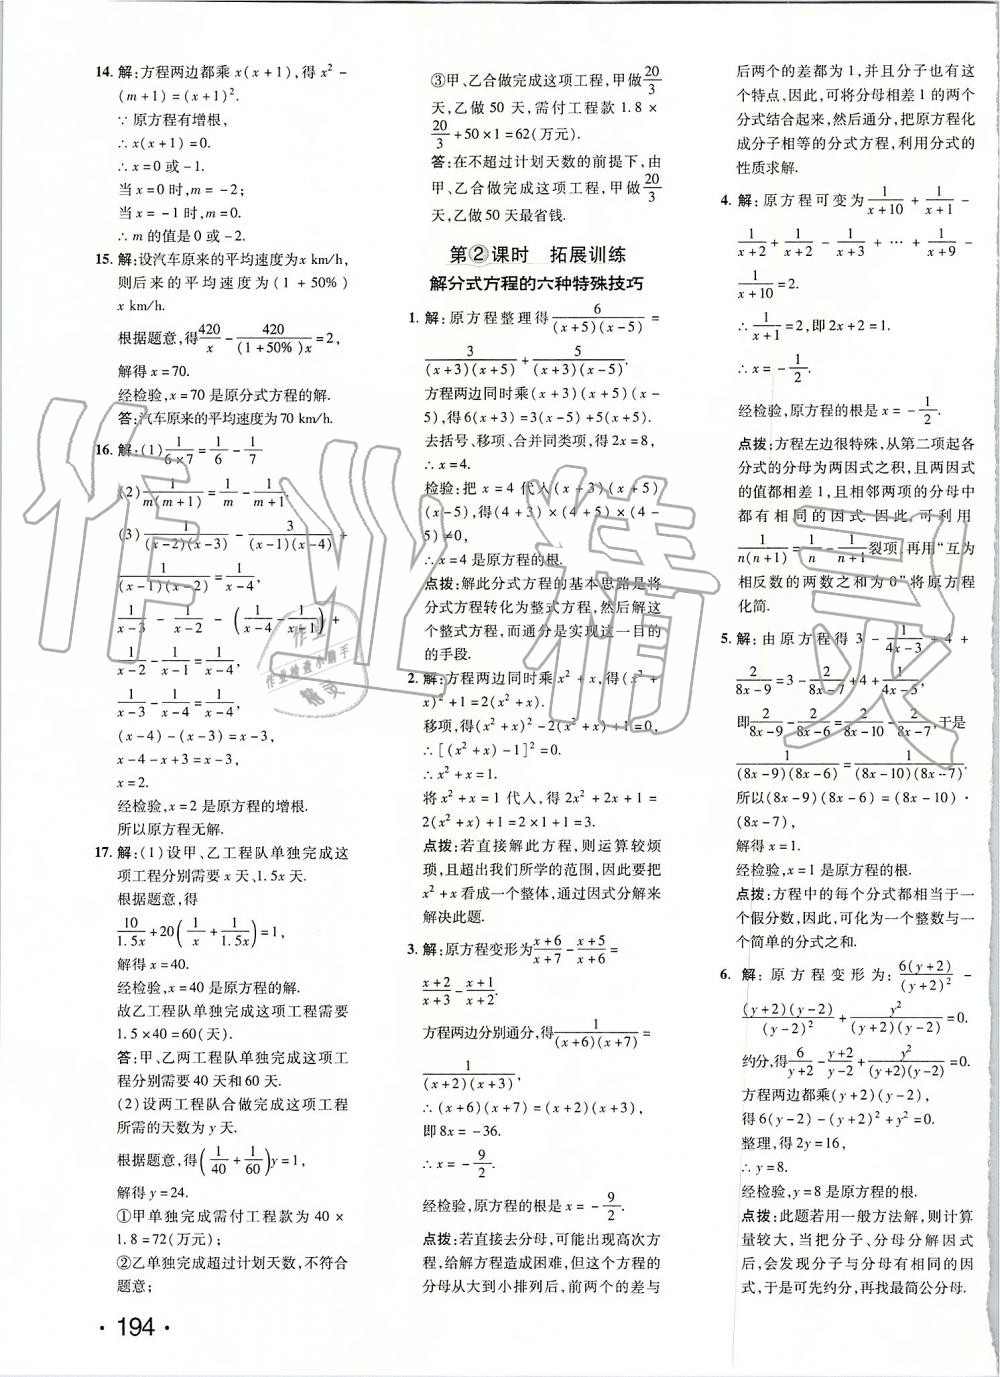 14. 解:方程两边都乘 x(x+1),得 x²-
(m+1)=(x+1)².
∵原方程有增根,
∴x(x+1)=0.
∴x=0 或-1.
当 x=0 时,m=-2;
当 x=-1 时,m=0.
∴m 的值是 0 或-2.
15. 解:设汽车原来的平均速度为 x km/h,
则后来的平均速度为(1+50%)
x km/h.
根据题意,得420/x-420/((1+50%)x)=2,
解得 x=70.
经检验,x=70 是原分式方程的解.
答:汽车原来的平均速度为 70 km/h.
16. 解:(1)1/(6×7)=1/6-1/7
(2)1/(m(m+1))=1/m-1/(m+1).
(3)1/((x-2)(x-3))-3/((x-1)(x-4))+
1/((x-1)(x-2))=1/(x-4),
1/(x-3)-1/(x-2)-(1/(x-4)-1/(x-1))+
1/(x-2)-1/(x-1)=1/(x-4),
1/(x-3)-1/(x-4)=1/(x-4),
(x-4)-(x-3)=x-3,
x-4-x+3=x-3,
x=2.
经检验,x=2 是原方程的增根.
所以原方程无解.
17. 解:(1)设甲、乙工程队单独完成这
项工程分别需要 x 天、1.5x 天.
根据题意,得
10/1.5x+20(1/x+1/1.5x)=1,
解得 x=40.
经检验,x=40 是原方程的解.
故乙工程队单独完成这项工程需要
1.5×40=60(天).
答:甲、乙两工程队单独完成这项工
程分别需要 40 天和 60 天.
(2)设两工程队合做完成这项工程
所需的天数为 y 天.
根据题意,得(1/40+1/60)y=1,
解得 y=24.
①甲单独完成需付工程款为 40×
1.8=72(万元);
②乙单独完成超过计划天数,不符合
题意;
③甲、乙合做完成这项工程,甲做20/3
天,乙做 50 天,需付工程款 1.8×
20/3+50×1=62(万元).
答:在不超过计划天数的前提下,由
甲、乙合做完成这项工程,甲做20/3
天,乙做 50 天最省钱.
第②课时 拓展训练
解分式方程的六种特殊技巧
1. 解:原方程整理得6/((x+5)(x-5))=
3/((x+3)(x-5))+5/((x+3)(x-5)).
方程两边同时乘(x+3)(x+5)(x-
5),得 6(x+3)=3(x-5)+5(x+5).
去括号、移项、合并同类项,得 2x=8,
∴x=4.
检验:把 x=4 代入(x+3)(x+5)
(x-5),得(4+3)×(4+5)×(4-
5)≠0,
∴x=4 是原方程的根.
点拨:解此分式方程的基本思路是将
分式方程转化为整式方程,然后解这
个整式方程,而通分是实现这一目的
的手段.
2. 解:方程两边同时乘 x²+x,得(x²+
x)²+1=2(x²+x).
移项,得(x²+x)²-2(x²+x)+1=0,
∴[(x²+x)-1]²=0.
∴x²+x=1.
将 x²+x=1 代入,得 2x²+2x+1=
2(x²+x)+1=2×1+1=3.
点拨:若直接解此方程,则运算较烦
琐,且超出我们所学的范围,因此要把
x²+x 看成一个整体,通过因式分解来
解决此题.
3. 解:原方程变形为(x+6)/(x+7)-(x+5)/(x+6)=
(x+2)/(x+3)-(x+1)/(x+2).
方程两边分别通分,得1/((x+6)(x+7))=
1/((x+2)(x+3)),
∴(x+6)(x+7)=(x+2)(x+3),
即 8x=-36.
∴x=-9/2.
经检验,原方程的根是 x=-9/2.
点拨:若直接去分母,可能出现高次方
程,给解方程造成困难,但这个方程的
分母从大到小排列后,前两个的差与
后两个的差都为 1,并且分子也有这
个特点,因此,可将分母相差 1 的两个
分式结合起来,然后通分,把原方程化
成分子相等的分式方程,利用分式的
性质求解.
4. 解:原方程可变为1/(x+10)+1/(x+1)-
1/(x+2)+1/(x+2)-1/(x+3)+…+1/(x+9)-
1/(x+10)=2.
∴1/(x+1)=2,即 2x+2=1.
∴x=-1/2.
经检验,原方程的根是 x=-1/2.
点拨:方程左边很特殊,从第二项起各
分式的分母为两因式之积,且两因式
的值都相差 1,且相邻两项的分母中
都有相同的因式.因此,可利用
1/(n(n+1))=1/n-1/(n+1)裂项,再用“互为
相反数的两数之和为 0”将原方程
化简.
5. 解:由原方程得 3-1/(4x-3)+4+
2/(8x-9)=3-2/(8x-7)+4+1/(4x-5),
即2/(8x-9)-2/(8x-6)=2/(8x-10)-2/(8x-7),于是
1/((8x-9)(8x-6))=1/((8x-10)(8x-7)).
所以(8x-9)(8x-6)=(8x-10)·
(8x-7),
解得 x=1.
经检验,x=1 是原方程的根.
点拨:方程中的每个分式都相当于一
个假分数,因此,可化为一个整数与一
个简单的分式之和.
6. 解:原方程变形为:6(y+2)/(y+2)²-
(y+2)(y-2)/(y-2)²+y²/((y+2)(y-2))=0.
约分,得6/(y+2)-(y+2)/(y-2)+y²/((y+2)(y-2))=0.
方程两边都乘(y+2)(y-2),
得 6(y-2)-(y+2)²+y²=0.
整理,得 2y=16,
∴y=8.
经检验,y=8 是原方程的根.
点拨:此题若用一般方法解,则计算
量较大,当把分子、分母分解因式
后,会发现分子与分母有相同的因
式,于是可先约分,再找最简公分母.
·194·
作业精灵